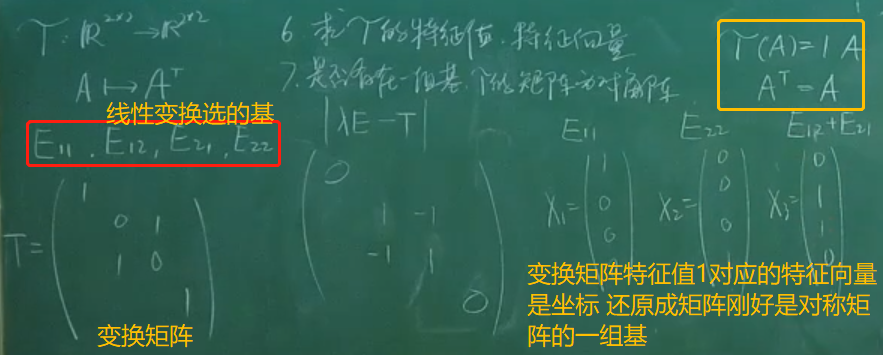 𝒯: ℝ²ˣ² → ℝ²ˣ²
A ↦ Aᵀ
线性变换选的基
E₁₁, E₁₂, E₂₁, E₂₂
T =
1
0 1
1 0
1
变换矩阵
6. 求𝒯的特征值, 特征向量
7. 是否存在一组基, 𝒯的矩阵为对角阵
|λE-T|
0
1 -1
-1 1
0
𝒯(A)=1 A
Aᵀ=A
E₁₁ E₂₂ E₁₂+E₂₁
X₁=
1
0
0
X₂=
0
0
0
X₃=
0
1
1
0
变换矩阵特征值1对应的特征向量
是坐标 还原成矩阵刚好是对称矩
阵的一组基